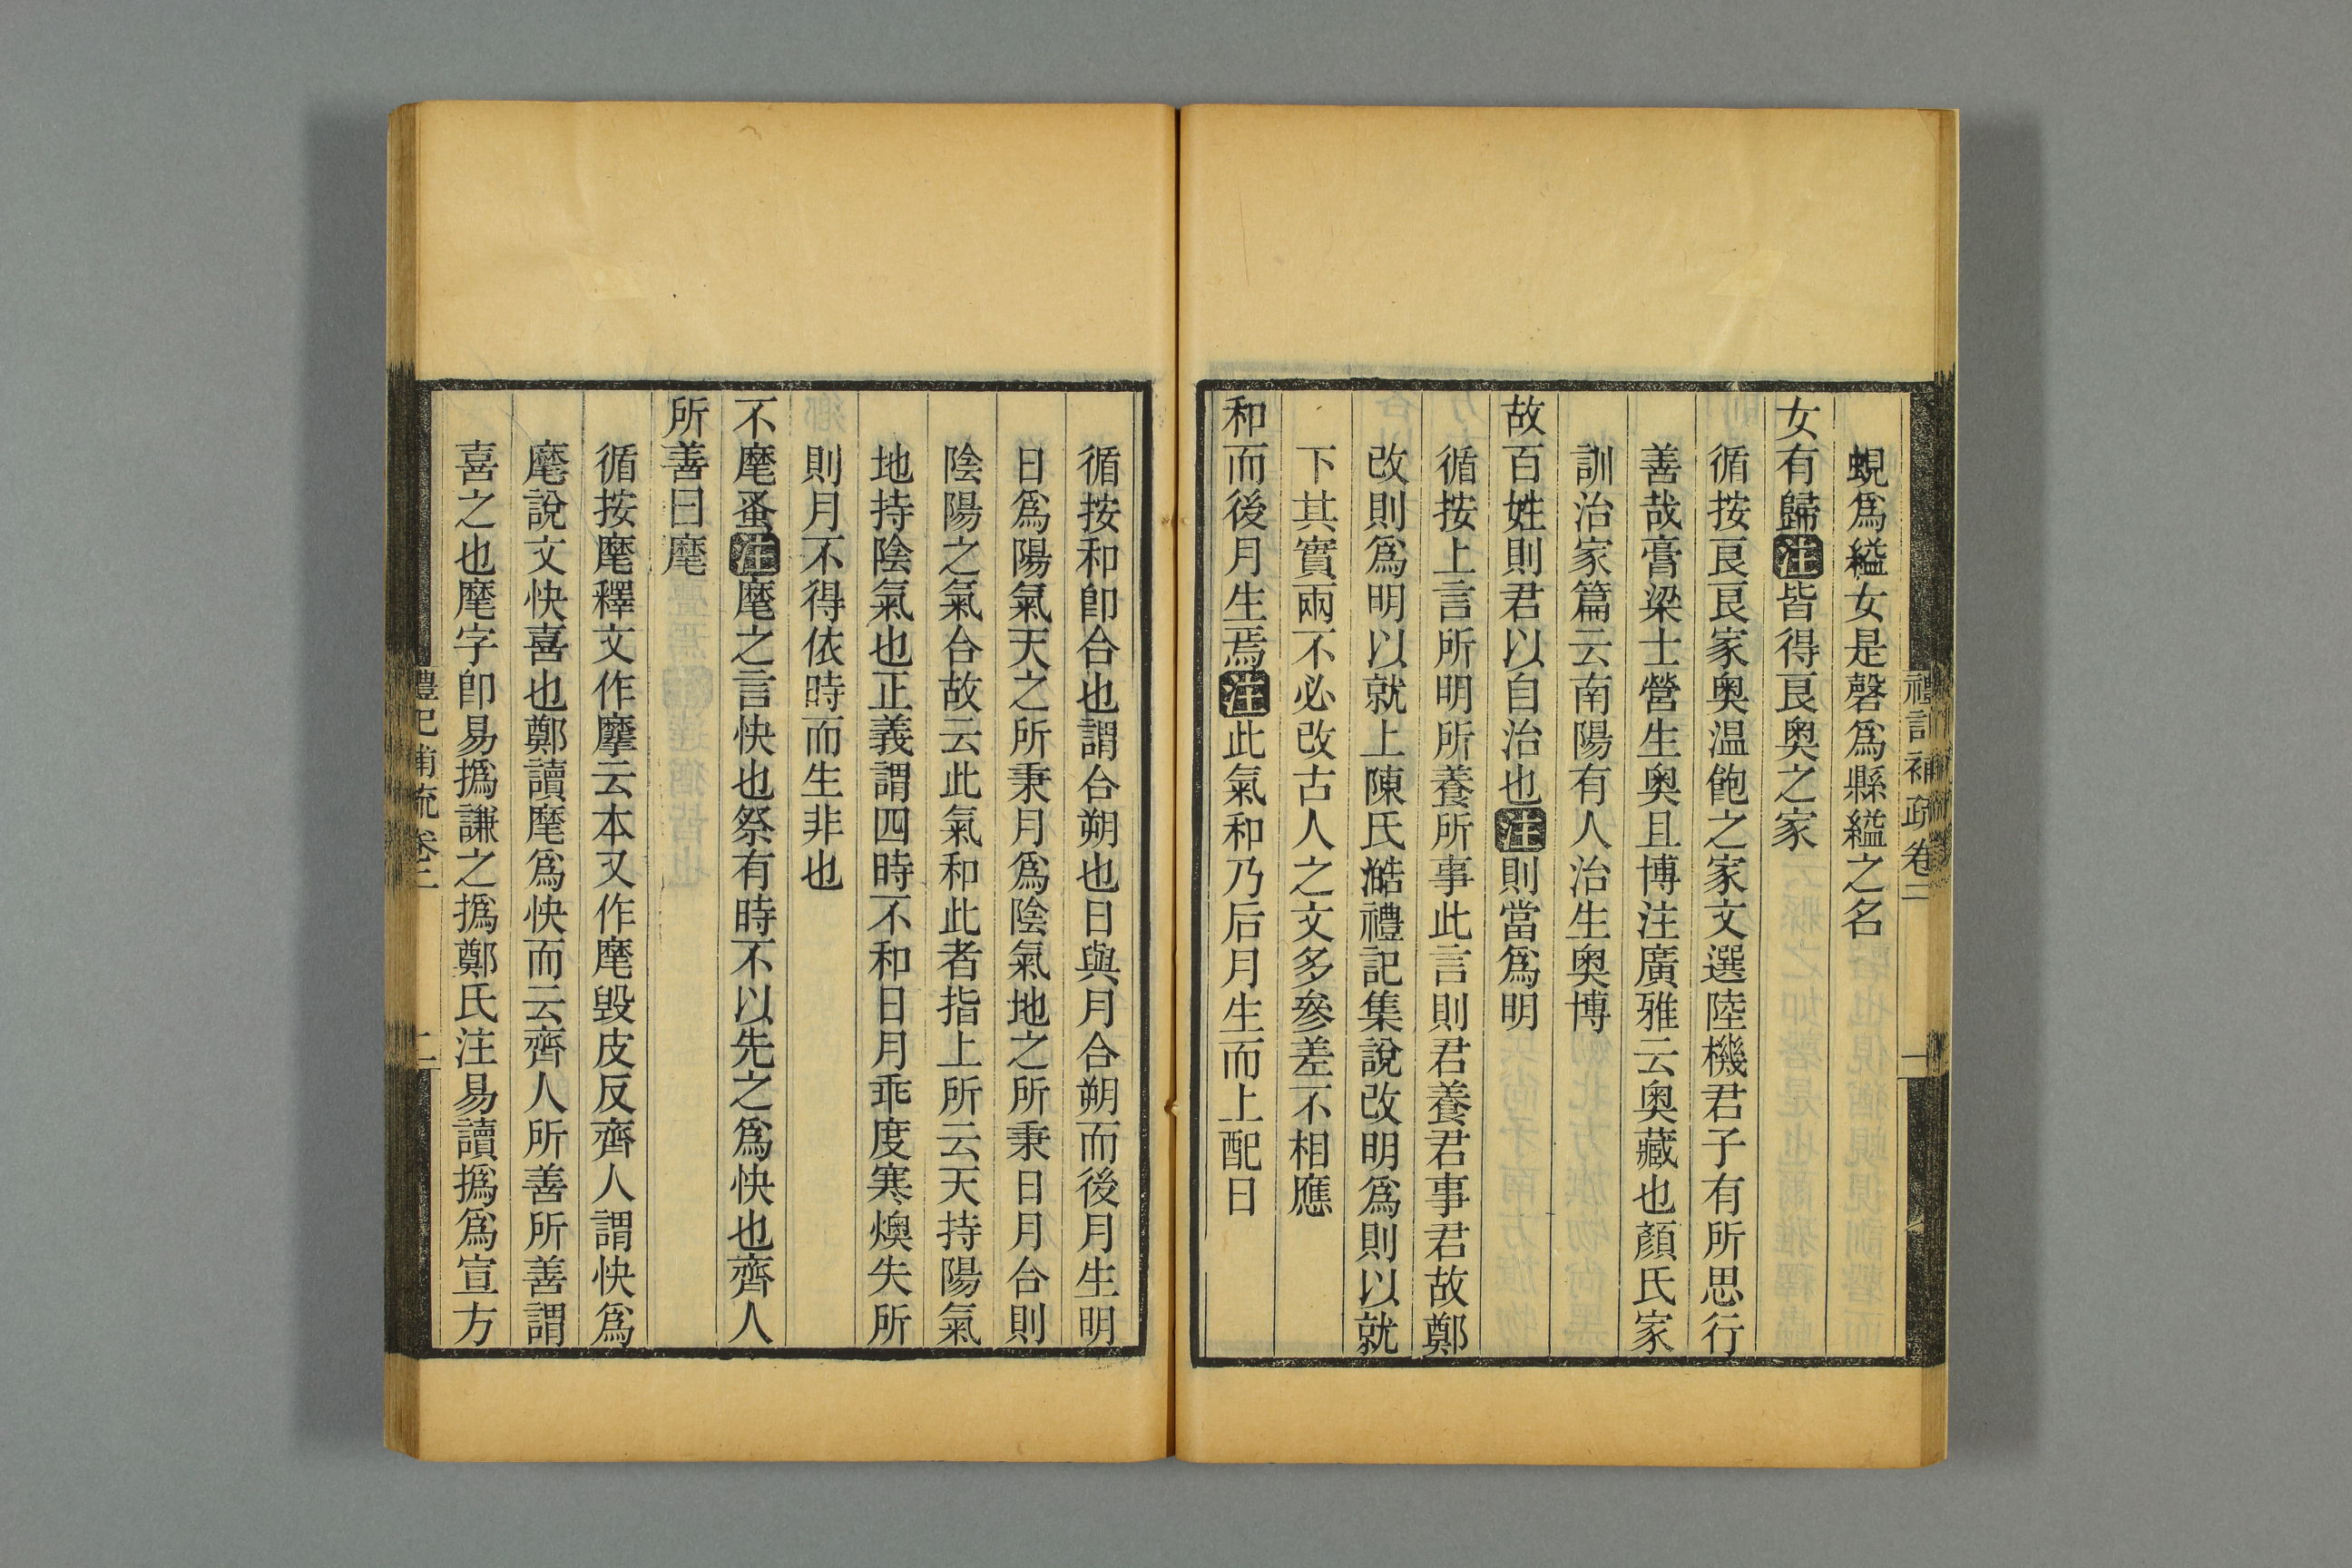 禮記補疏卷二
一
蜆爲縊女是磬爲縣縊之名
女有歸注皆得良奧之家
循按良良家奥温飽之家文選陸機君子有所思行
善哉膏粱士營生奥且博注廣雅云奥藏也顏氏家
訓治家篇云南陽有人治生奥博
故百姓則君以自治也注則當爲明
循按上言所明所養所事此言則君養君事君故鄭
改則爲明以就上陳氏澔禮記集說改明爲則以就
下其實兩不必改古人之文多參差不相應
和而後月生焉注此氣和乃后月生而上配日
循按和卽合也謂合朔也日與月合朔而後月生明
日爲陽氣天之所秉月爲陰氣地之所秉日月合則
陰陽之氣合故云此氣和此者指上所云天持陽氣
地持陰氣也正義謂四時不和日月乖度寒燠失所
則月不得依時而生非也
不麾蚤注麾之言快也祭有時不以先之爲快也齊人
所善曰麾
循按麾釋文作摩云本又作麾毀皮反齊人謂快爲
麾說文快喜也鄭讀麾爲快而云齊人所善所善謂
喜之也麾字卽易撝謙之撝鄭氏注易讀撝爲宣方
禮記補疏卷二
二